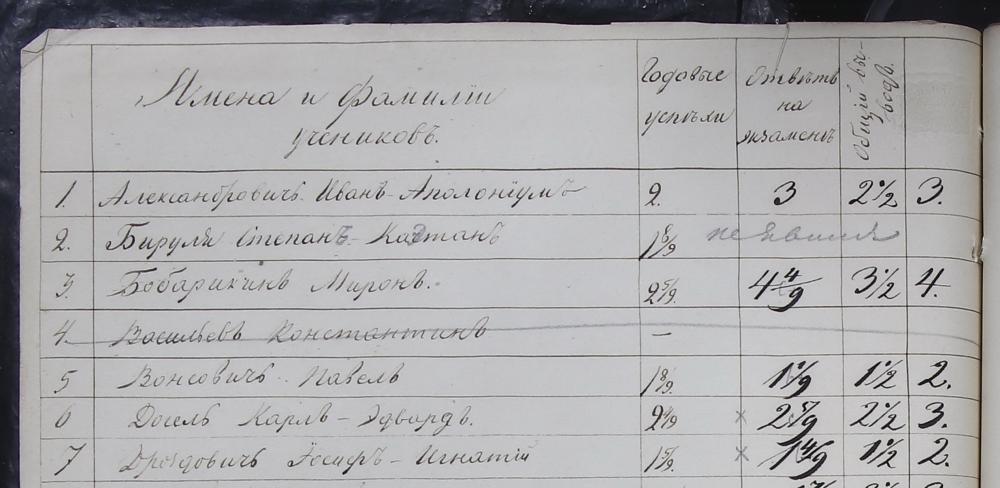 Имена и Фамилiи
учениковъ.
Годовые
успѣхи
Отвѣтъ
на
экзаменѣ
Общiй вы-
водъ.
1. Александровичъ Иванъ-Аполонiумъ 2. 3 2 1/2 3.
2. Бируля Степанъ-Каэтанъ 1 8/9 не явился
3. Бобарикинъ Миронъ. 2 5/9. 4 4/9 3 1/2 4.
4. Васильевъ Константинъ —
5 Вонсовичъ Павелъ 1 8/9. 1 1/2 2.
6 Досель Карлъ-Эдвардъ. x 2 1/2 3.
7 Дроздовичъ Iосифъ-Игнатiй 1 5/9. x 1 4/9 1 1/2 2.